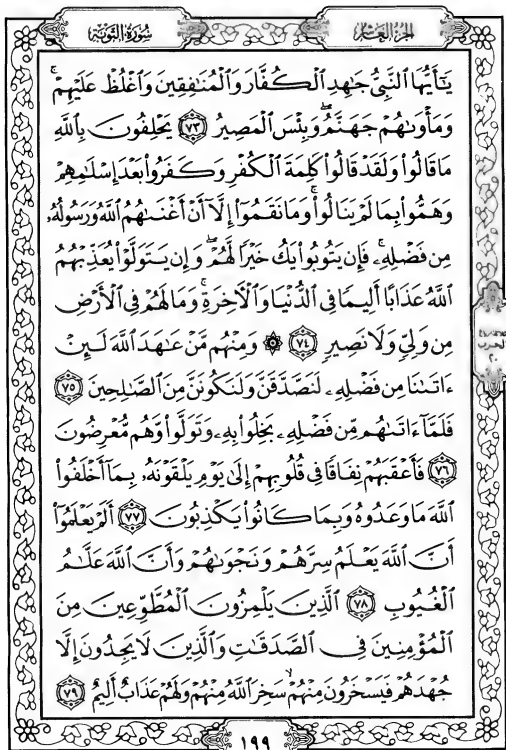 الجزء العاشر
سورة التوبة
يَٰٓأَيُّهَا ٱلنَّبِيُّ جَٰهِدِ ٱلۡكُفَّارَ وَٱلۡمُنَٰفِقِينَ وَٱغۡلُظۡ عَلَيۡهِمۡۚ
وَمَأۡوَىٰهُمۡ جَهَنَّمُۖ وَبِئۡسَ ٱلۡمَصِيرُ ٧٣ يَحۡلِفُونَ بِٱللَّهِ
مَا قَالُواْ وَلَقَدۡ قَالُواْ كَلِمَةَ ٱلۡكُفۡرِ وَكَفَرُواْ بَعۡدَ إِسۡلَٰمِهِمۡ
وَهَمُّواْ بِمَا لَمۡ يَنَالُواْۚ وَمَا نَقَمُوٓاْ إِلَّآ أَنۡ أَغۡنَىٰهُمُ ٱللَّهُ وَرَسُولُهُۥ
مِن فَضۡلِهِۦۚ فَإِن يَتُوبُواْ يَكُ خَيۡرٗا لَّهُمۡۖ وَإِن يَتَوَلَّوۡاْ يُعَذِّبۡهُمُ
ٱللَّهُ عَذَابًا أَلِيمٗا فِي ٱلدُّنۡيَا وَٱلۡأٓخِرَةِۚ وَمَا لَهُمۡ فِي ٱلۡأَرۡضِ
مِن وَلِيّٖ وَلَا نَصِيرٖ ٧٤ ۞ وَمِنۡهُم مَّنۡ عَٰهَدَ ٱللَّهَ لَئِنۡ
ءَاتَىٰنَا مِن فَضۡلِهِۦ لَنَصَّدَّقَنَّ وَلَنَكُونَنَّ مِنَ ٱلصَّٰلِحِينَ ٧٥
فَلَمَّآ ءَاتَىٰهُم مِّن فَضۡلِهِۦ بَخِلُواْ بِهِۦ وَتَوَلَّواْ وَّهُم مُّعۡرِضُونَ
٧٦ فَأَعۡقَبَهُمۡ نِفَاقٗا فِي قُلُوبِهِمۡ إِلَىٰ يَوۡمِ يَلۡقَوۡنَهُۥ بِمَآ أَخۡلَفُواْ
ٱللَّهَ مَا وَعَدُوهُ وَبِمَا كَانُواْ يَكۡذِبُونَ ٧٧ أَلَمۡ يَعۡلَمُوٓاْ
أَنَّ ٱللَّهَ يَعۡلَمُ سِرَّهُمۡ وَنَجۡوَىٰهُمۡ وَأَنَّ ٱللَّهَ عَلَّٰمُ
ٱلۡغُيُوبِ ٧٨ ٱلَّذِينَ يَلۡمِزُونَ ٱلۡمُطَّوِّعِينَ مِنَ
ٱلۡمُؤۡمِنِينَ فِي ٱلصَّدَقَٰتِ وَٱلَّذِينَ لَا يَجِدُونَ إِلَّا
جُهۡدَهُمۡ فَيَسۡخَرُونَ مِنۡهُمۡ سَخِرَ ٱللَّهُ مِنۡهُمۡ وَلَهُمۡ عَذَابٌ أَلِيمٌ ٧٩
الحزب
٢٠
١٩٩